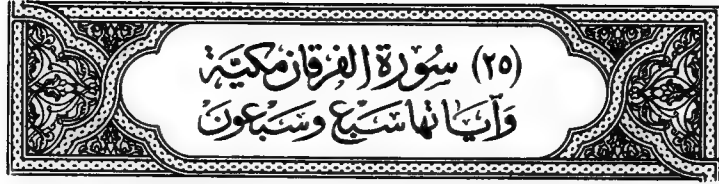 (٢٥) سُورَة الفرقان مكيّة
وَآيَاتها سَبْع وسَبْعونَ